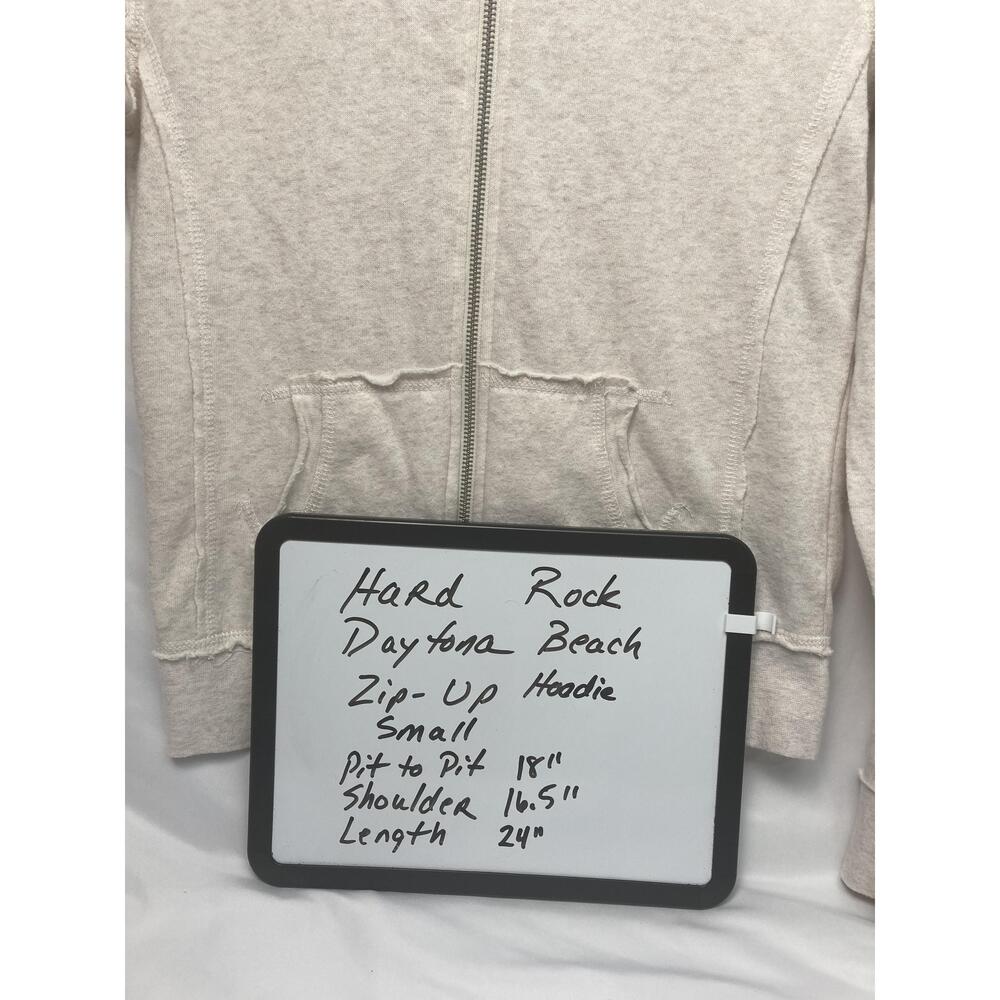 Hard Rock
Daytona Beach
Zip-Up Hoodie
Small
Pit to Pit 18"
Shoulder 16.5"
Length 24"